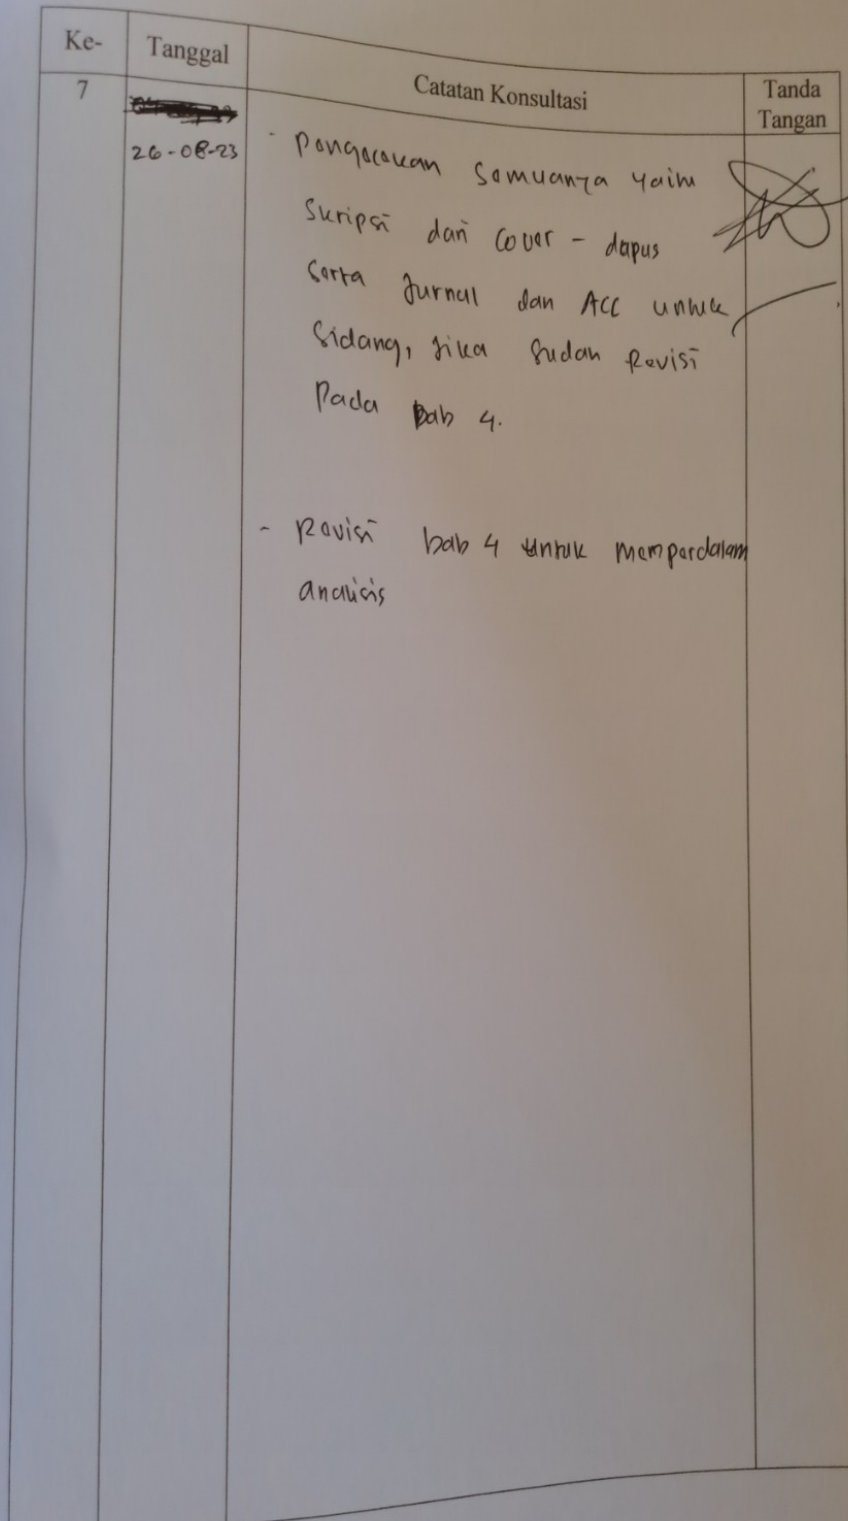 Ke- Tanggal Catatan Konsultasi Tanda Tangan
7
26-08-23
- Pengecekan semuanya yaitu
Skripsi dari Cover - dapus
Serta Jurnal dan ACC untuk
Sidang, jika sudah Revisi
Pada Bab 4.
- Revisi bab 4 untuk memperdalam
analisis